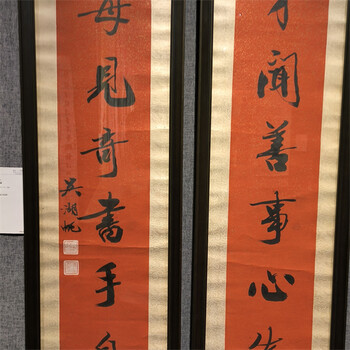 聞善事心
每見奇書手自
吳湖帆